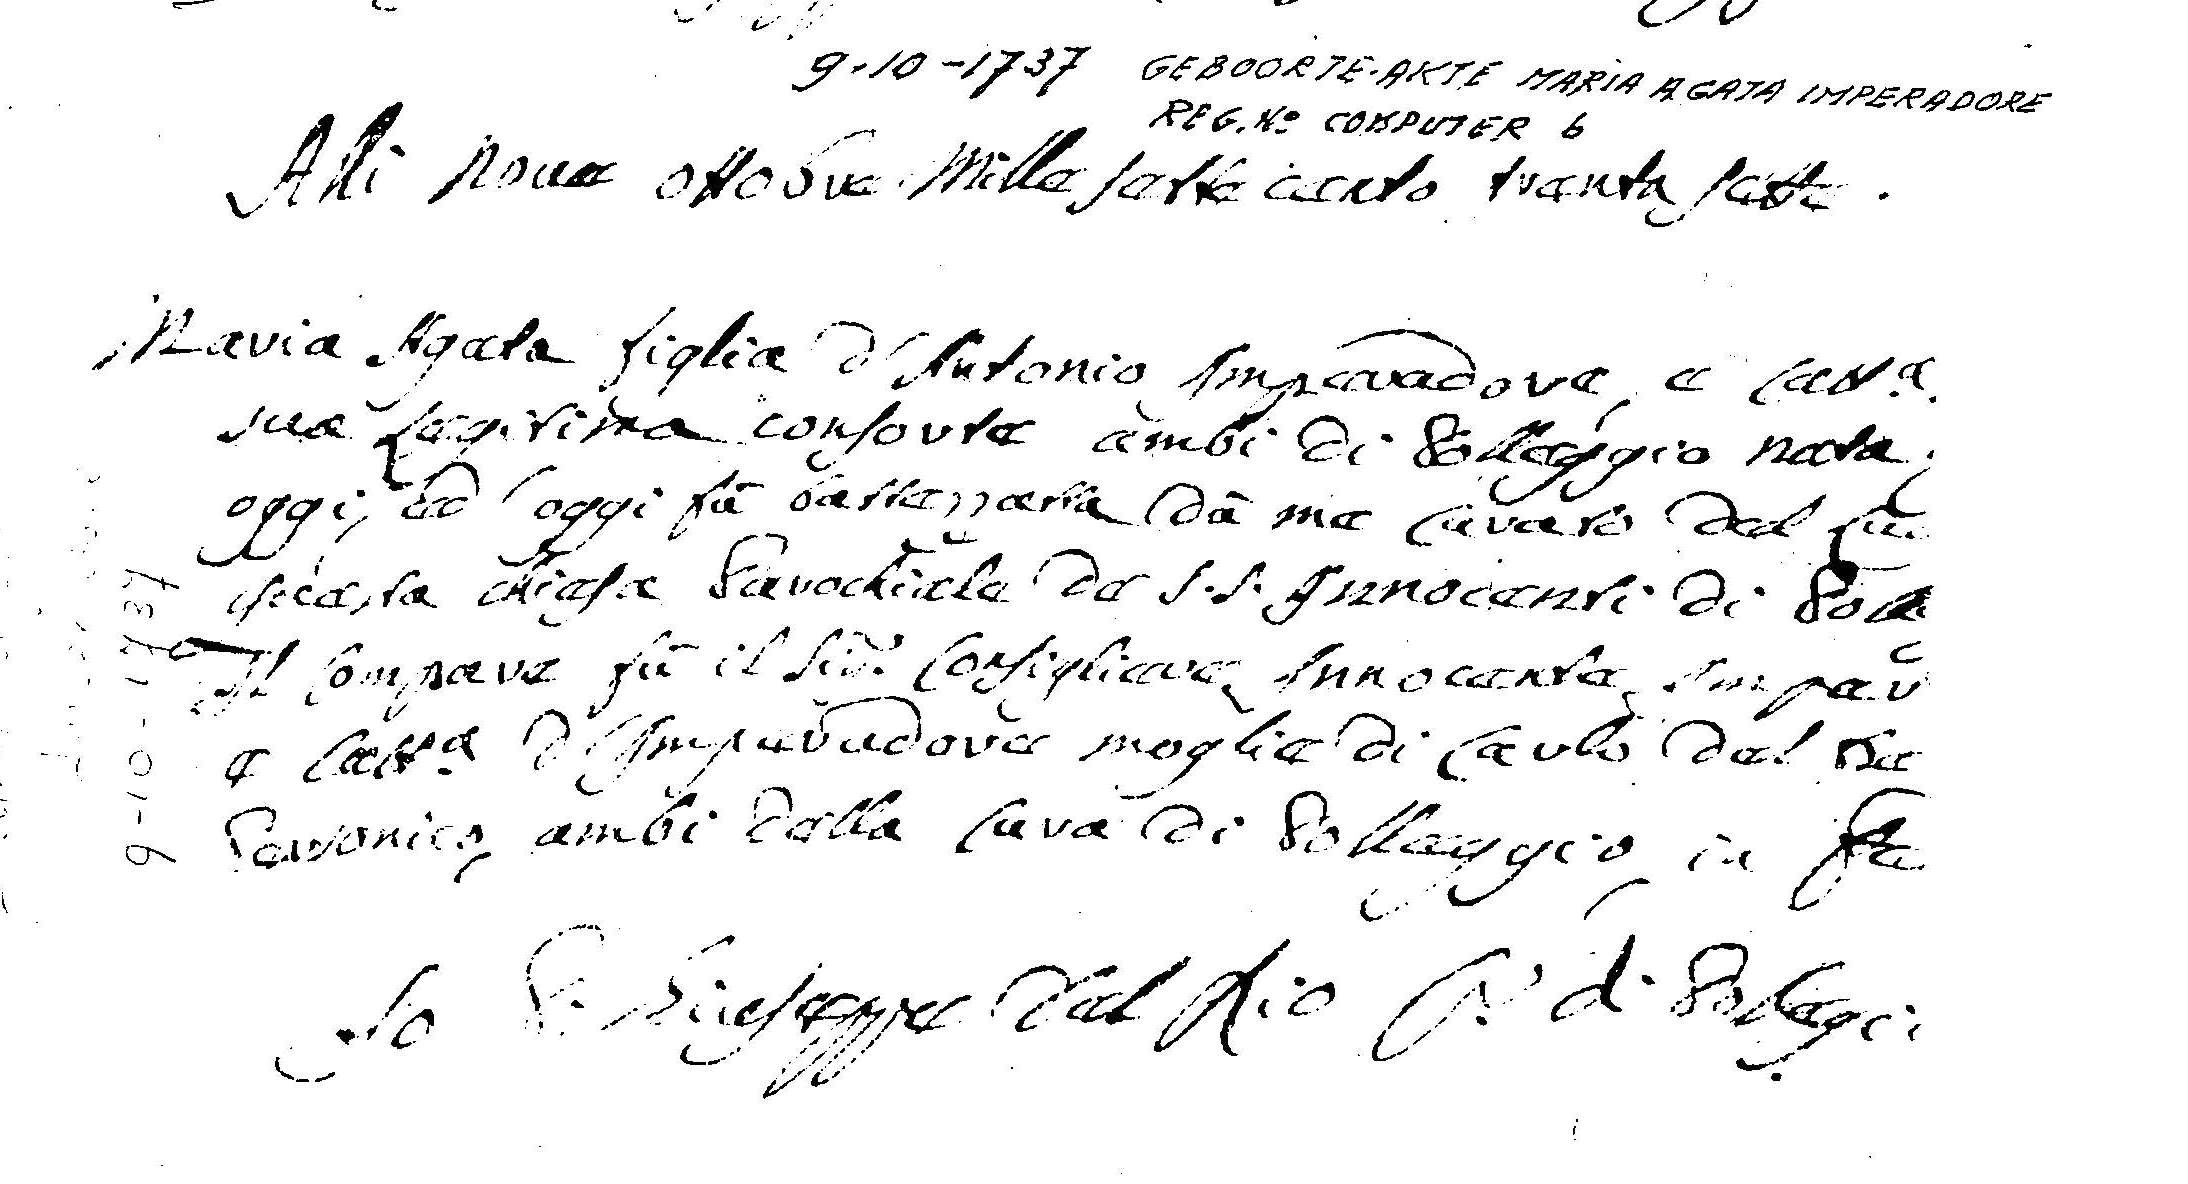 9-10-1737 GEBOORTE-AKTE MARIA AGATA IMPERADORE
REG. No COMPUTER 6
Alli nove ottobre Mille sette cento trenta sette.
Maria Agata figlia d'Antonio Imperadore, e Catta.
sua legitima consorte ambi di Pollaggio nata,
oggi, ed oggi fù battezzatta dà me Curato del
chiesa Parochiale de S.S. Innocenti di Poll
Il Compare fù il Sigr. Consigliare Innocente Imper
e Catta. d'Imperadore moglie di Carlo del
Personico, ambi della Cura di Pollaggio, in fe
Io P. Giuseppe del Rio C. di Pollegi
9-10-1737